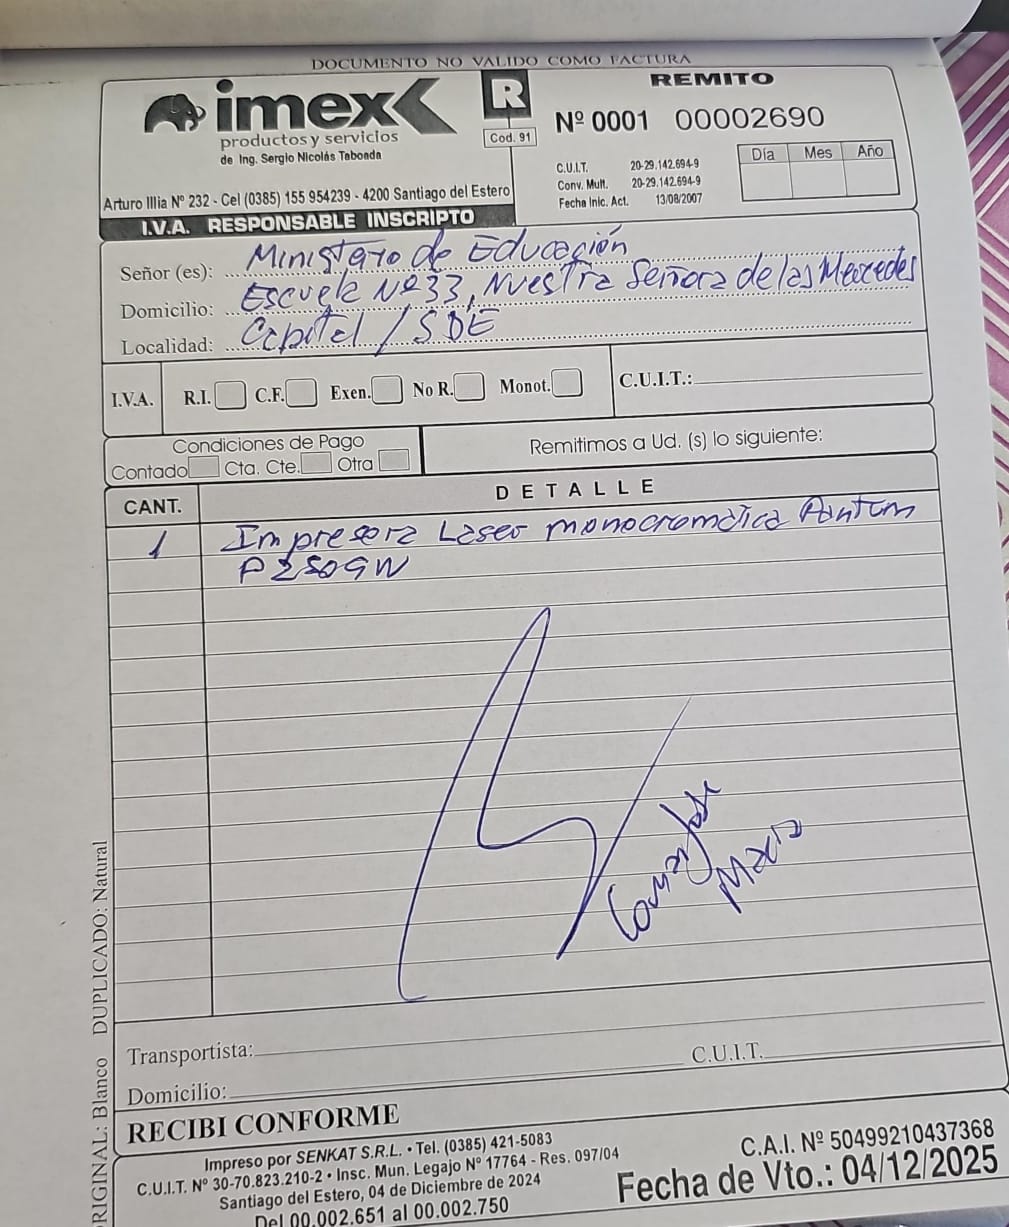 DOCUMENTO NO VALIDO COMO FACTURA
imex
productos y servicios
de Ing. Sergio Nicolás Tabonda
R
Cod. 91
REMITO
Nº 0001 00002690
C.U.I.T. 20-29.142.694-9
Conv. Mult. 20-29.142.694-9
Fecha Inic. Act. 13/08/2007
Día Mes Año
Arturo Illia Nº 232 - Cel (0385) 155 954239 - 4200 Santiago del Estero
I.V.A. RESPONSABLE INSCRIPTO
Señor (es): Ministerio de Educación
Domicilio: Escuela Nº 33, Nuestra Señora de las Mercedes
Localidad: Capital / SDE
I.V.A. R.I. C.F. Exen. No R. Monot. C.U.I.T.:
Condiciones de Pago
Contado Cta. Cte. Otra
Remitimos a Ud. (s) lo siguiente:
CANT. DETALLE
1 Impresora Laser monocromática Pantum
P2509W
Transportista: C.U.I.T.
Domicilio:
RECIBI CONFORME
Impreso por SENKAT S.R.L. • Tel. (0385) 421-5083
C.U.I.T. Nº 30-70.823.210-2 • Insc. Mun. Legajo Nº 17764 - Res. 097/04
Santiago del Estero, 04 de Diciembre de 2024
Del 00.002.651 al 00.002.750
C.A.I. Nº 50499210437368
Fecha de Vto.: 04/12/2025
ORIGINAL: Blanco DUPLICADO: Natural